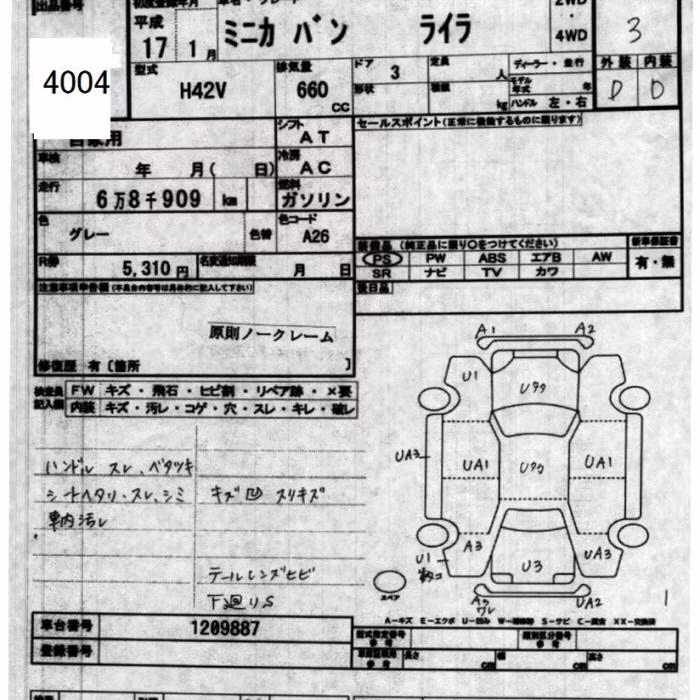 出品番号
4004
平成
17 1月
ミニカ バン ライラ
2WD
・
4WD
3
型式
H42V
排気量
660
CC
ドア
3
定員
人
形状
積載
kg
ディーラー・並行
モデル年式 年
ハンドル 左・右
外装 内装
D D
自家用
シフト
AT
車検
年 月( 日)
冷房
AC
走行
6万8千909 km
燃料
ガソリン
色
グレー
色替
色コード
A26
R券
5,310円
名変通知期限
月 日
セールスポイント(正常に機能するものに限ります)
装備品 (純正品に限り○をつけてください)
PS PW ABS エアB AW
SR ナビ TV カワ
新車保証書
有・無
後日品
注意事項申告欄
原則ノークレーム
修復歴 有〔箇所 〕
検査員
記入欄
FW キズ・飛石・ヒビ割・リペア跡・×要
内装 キズ・汚レ・コゲ・穴・スレ・キレ・破レ
ハンドル スレ、ベタツキ
シートヘタリ・スレ、シミ
車内汚レ
キズ凹 スリキズ
テールレンズヒビ
下廻りS
A1 A2
U1
Uタク
UA3
UA1
Uタク
UA1
U1
A3
U3
UA3
A3
ワレ
UA2
スペア
A-キズ E-エクボ U-凹み W-補修跡 S-サビ C-腐食 XX-交換済
車台番号
1209887
登録番号
型式指定番号
参考
類別区分番号
参考
長さ cm
幅 cm
高さ cm